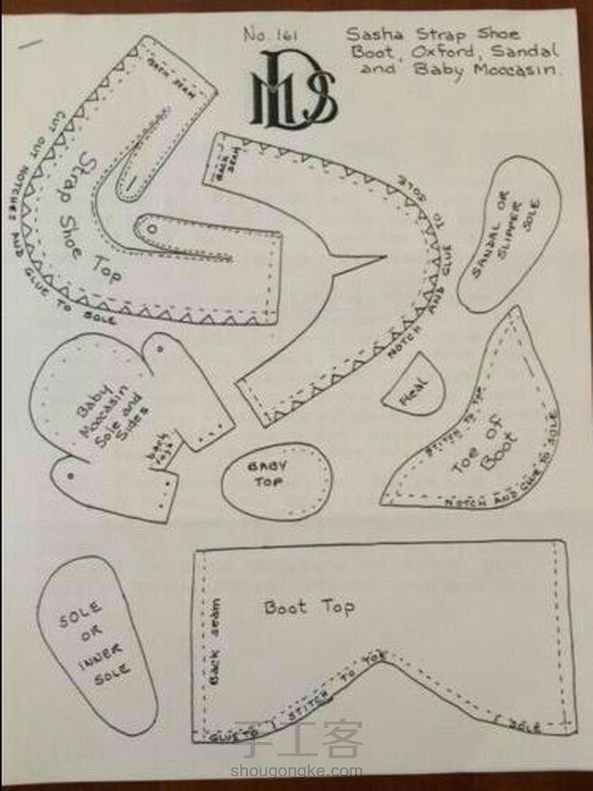 No. 161
Sasha Strap Shoe
Boot, Oxford, Sandal
and Baby Moccasin.
MDLS
BACK SEAM
CUT OUT NOTCHES AND GLUE TO SOLE
Strap Shoe Top
BACK SEAM
NOTCH AND GLUE TO SOLE
SANDAL OR
SLIPPER
SOLE
Heal
STITCH TO TOP
Toe of
Boot
NOTCH AND GLUE TO SOLE
Baby
Moccasin
Sole and
Sides
back
BABY
TOP
SOLE
OR
INNER
SOLE
Boot Top
Back seam
GLUE TO
STITCH TO TOE
SOLE
手工客
shougongke.com